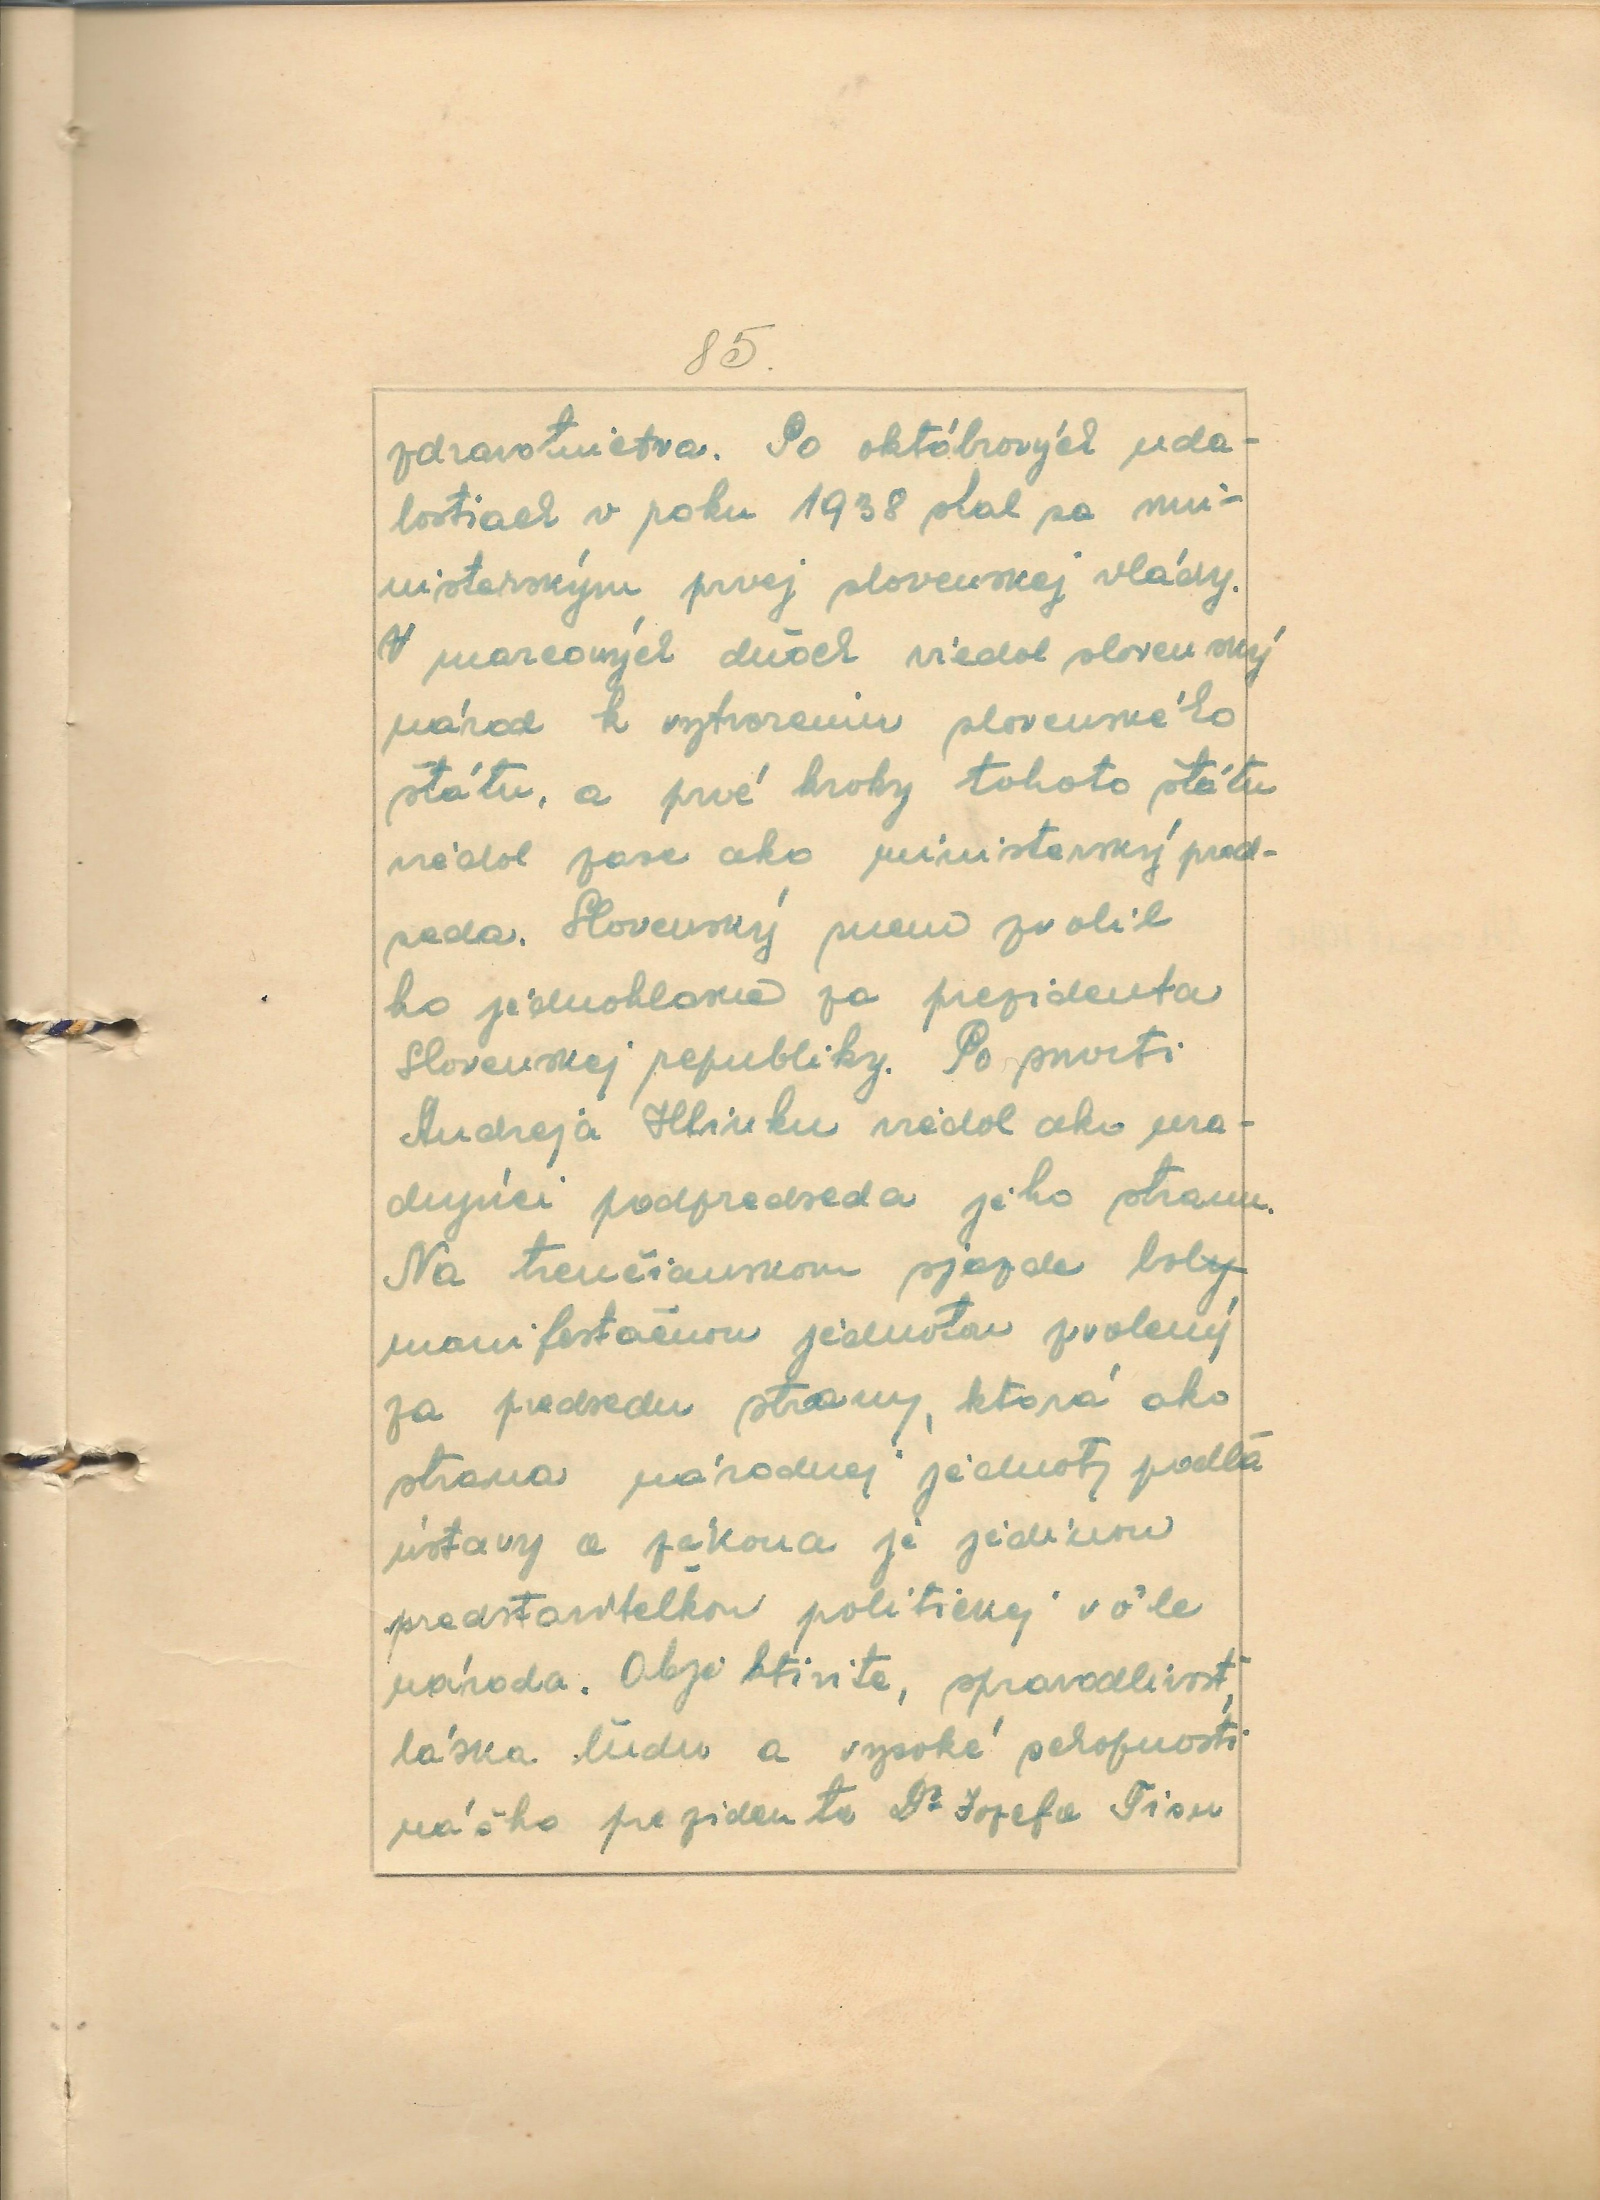 85.
zdravotnictva. Po októbrových uda-
lostiach v roku 1938 stal sa mi-
nisterským prvej slovenskej vlády.
V marcových dňoch viedol slovenský
národ k vytvoreniu slovenského
štátu, a prvé kroky tohoto štátu
viedol zase ako ministerský pred-
seda. Slovenský snem zvolil
ho jednohlasne za prezidenta
Slovenskej republiky. Po smrti
Andreja Hlinku viedol ako úra-
dujúci podpredseda jeho stranu.
Na trenčianskom sjazde bol
manifestačnou jednotou zvolený
za predsedu strany, ktorá ako
strana národnej jednoty podľa
ústavy a zákona je jedinou
predstaviteľkou politickej vôle
národa. Objektivita, spravodlivosť,
láska ľudu a vysoké schopnosti
nášho prezidenta Dr Jozefa Tisu